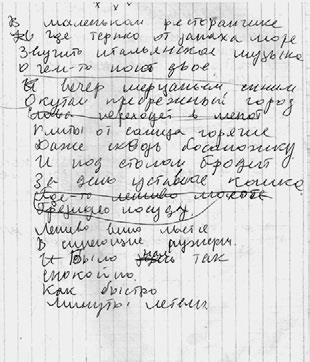 х х х
В маленьком ресторанчике
где терпко от запаха море
Звучит итальянская музыка
О чем-то поют двое
И вечер мерцаньем синим
Окутал прибрежный город
Слова переходят в шепот
Плиты от солнца горячие
Даже сквозь босоножку
И под столом бродит
За день уставшая кошка
Где-то лениво
посуду
Лениво вино льется
В
И было так
спокойно
Как быстро
Минуты летели